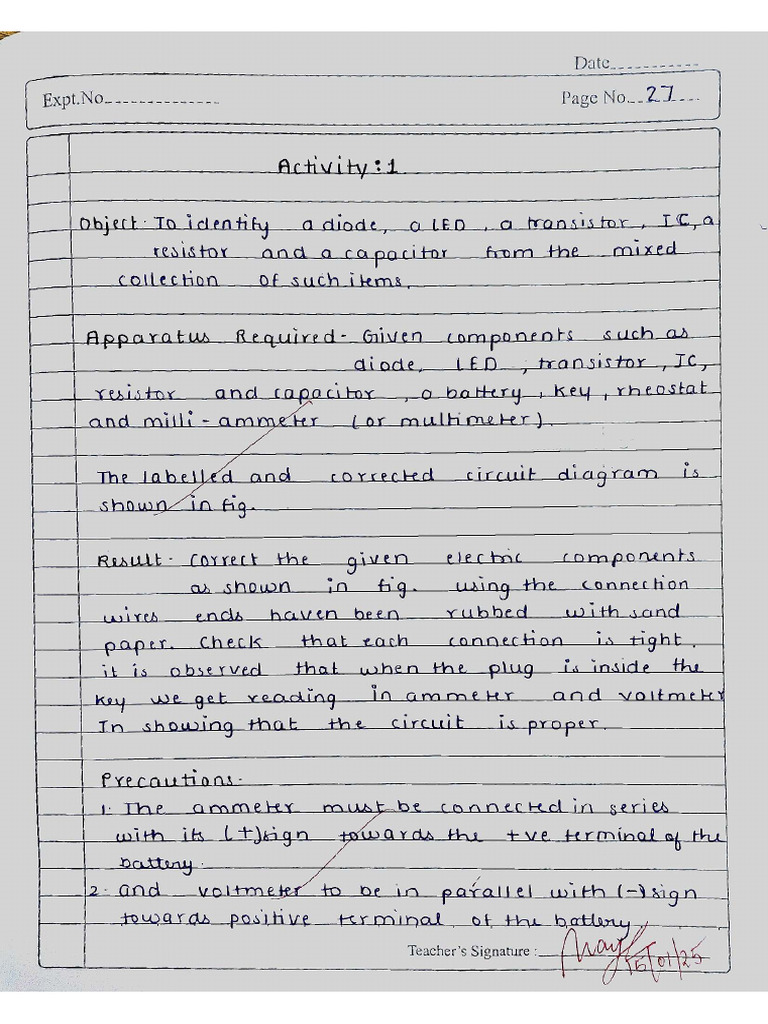 Date
Expt.No.
Page No. 27
Activity:1
Object- To identify a diode, a LED, a transistor, IC, a
resistor and a capacitor from the mixed
collection of such items.
Apparatus Required- Given components such as
diode, LED, transistor, IC,
resistor and capacitor, a battery, key, rheostat
and milli-ammeter (or multimeter).
The labelled and corrected circuit diagram is
shown in fig.
Result- Correct the given electric components
as shown in fig. using the connection
wires ends haven been rubbed with sand
paper. Check that each connection is tight.
it is observed that when the plug is inside the
key we get reading in ammeter and voltmeter
In showing that the circuit is proper.
Precautions-
1. The ammeter must be connected in series
with its (+)sign towards the +ve terminal of the
battery.
2. and voltmeter to be in parallel with (-)sign
towards positive terminal of the battery
Teacher's Signature :
15/01/25